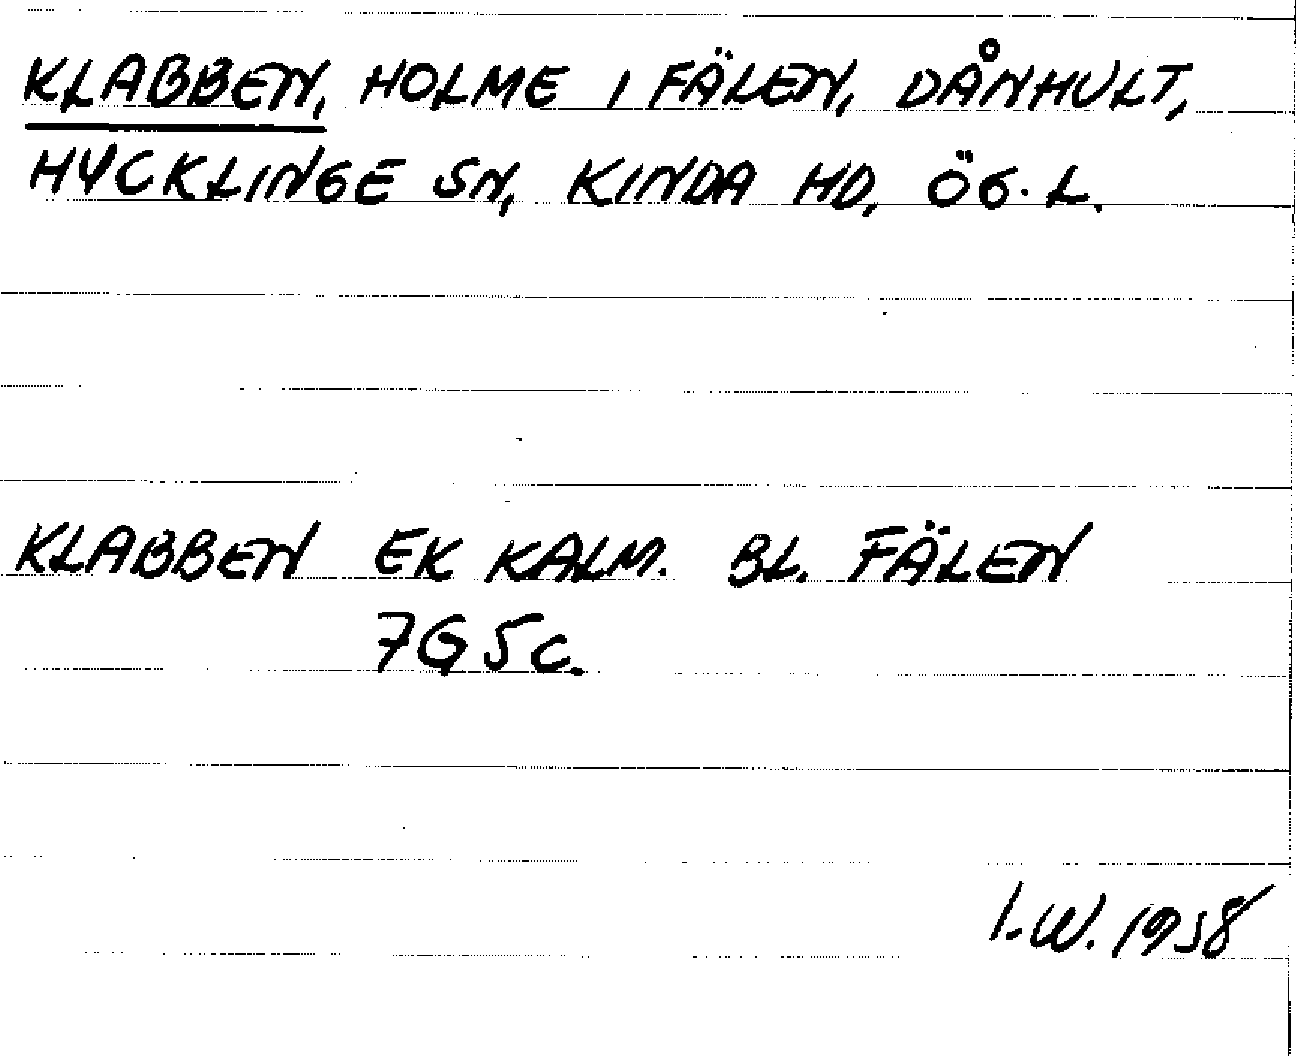 KLABBEN, HOLME I FÄLEN, DÅNHULT,
HYCKLINGE SN, KINDA HD, ÖG. L.
KLABBEN EK KALM. BL. FÄLEN
7G5c.
I.W. 1958